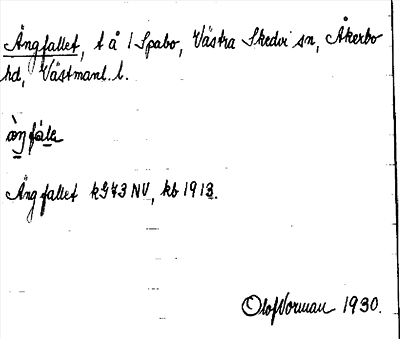 Ängfallet, t å 1 Spabo, Västra Skedvi sn, Åkerbo
hd, Västmanl. l.
æ̀ŋfȧlə
Ängfallet kg 43 NV, kb 1913.
Olof Norman 1930.